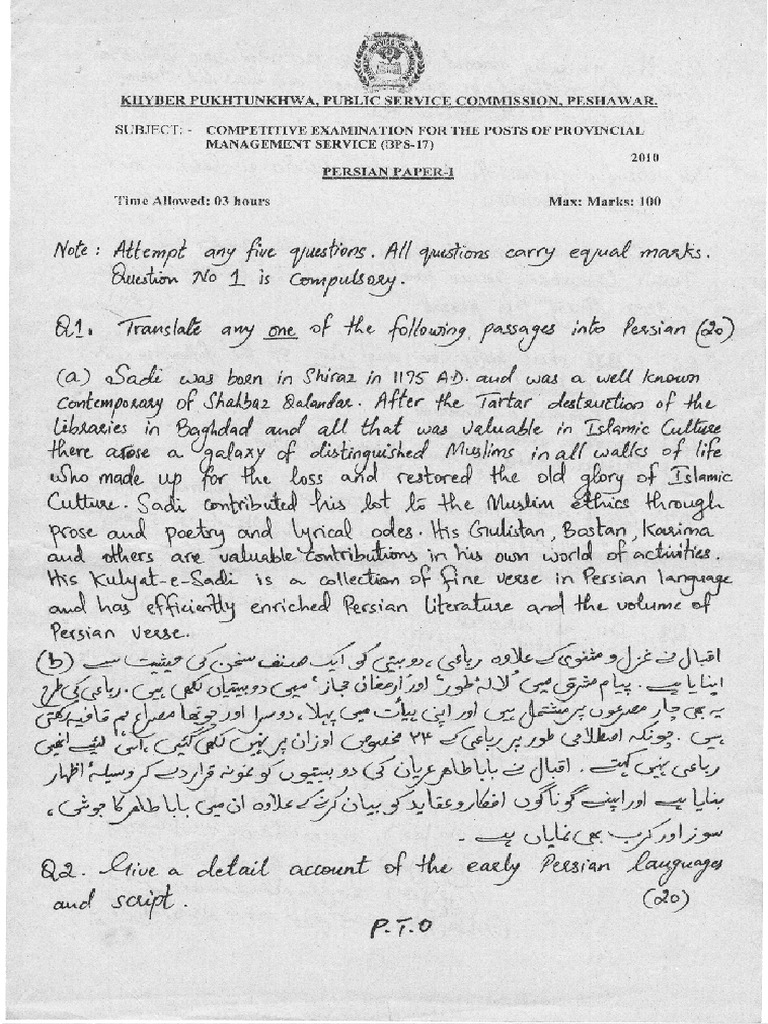 KHYBER PUKHTUNKHWA, PUBLIC SERVICE COMMISSION, PESHAWAR.
SUBJECT: - COMPETITIVE EXAMINATION FOR THE POSTS OF PROVINCIAL
MANAGEMENT SERVICE (BPS-17)
2010
PERSIAN PAPER-I
Time Allowed: 03 hours Max: Marks: 100
Note: Attempt any five questions. All questions carry equal marks.
Question No 1 is compulsory.
Q1. Translate any one of the following passages into Persian (20)
(a) Sadi was born in Shiraz in 1175 A.D. and was a well known
contemporary of Shahbaz Qalandar. After the Tartar destruction of the
libraries in Baghdad and all that was valuable in Islamic Culture
there arose a galaxy of distinguished Muslims in all walks of life
who made up for the loss and restored the old glory of Islamic
Culture. Sadi contributed his lot to the Muslim ethics through
prose and poetry and lyrical odes. His Gulistan, Bostan, Karima
and others are valuable contributions in his own world of activities.
His Kulyat-e-Sadi is a collection of fine verse in Persian language
and has efficiently enriched Persian Literature and the volume of
Persian verse.
(b) اقبال نے غزل و مثنوی کے علاوہ رباعی، دوبیتی کو ایک صنف سخن کی حیثیت سے
اپنایا ہے۔ پیام مشرق میں "لالۂ طور" اور ارمغان حجاز میں دوبیتیاں لکھی ہیں۔ رباعی کی طرح
یہ بھی چار مصرعوں پر مشتمل ہیں اور اپنی ہیأت میں پہلا، دوسرا اور چوتھا مصراع ہم قافیہ رکھتی
ہیں۔ چونکہ اصطلاحی طور پر رباعی کے ۲۴ مخصوص اوزان پر نہیں لکھی گئیں، اسی لئے انھیں
رباعی نہیں کہتے۔ اقبال نے بابا طاہر عریان کی دوبیتیوں کو نمونہ قرار دے کر وسیلۂ اظہار
بنایا ہے اور اپنے گوناگوں افکار و عقاید کو بیان کرنے کے علاوہ ان میں بابا طاہر کا جوشی،
سوز اور کرب بھی نمایاں ہے۔
Q2. Give a detail account of the early Persian languages
and script. (20)
P.T.O